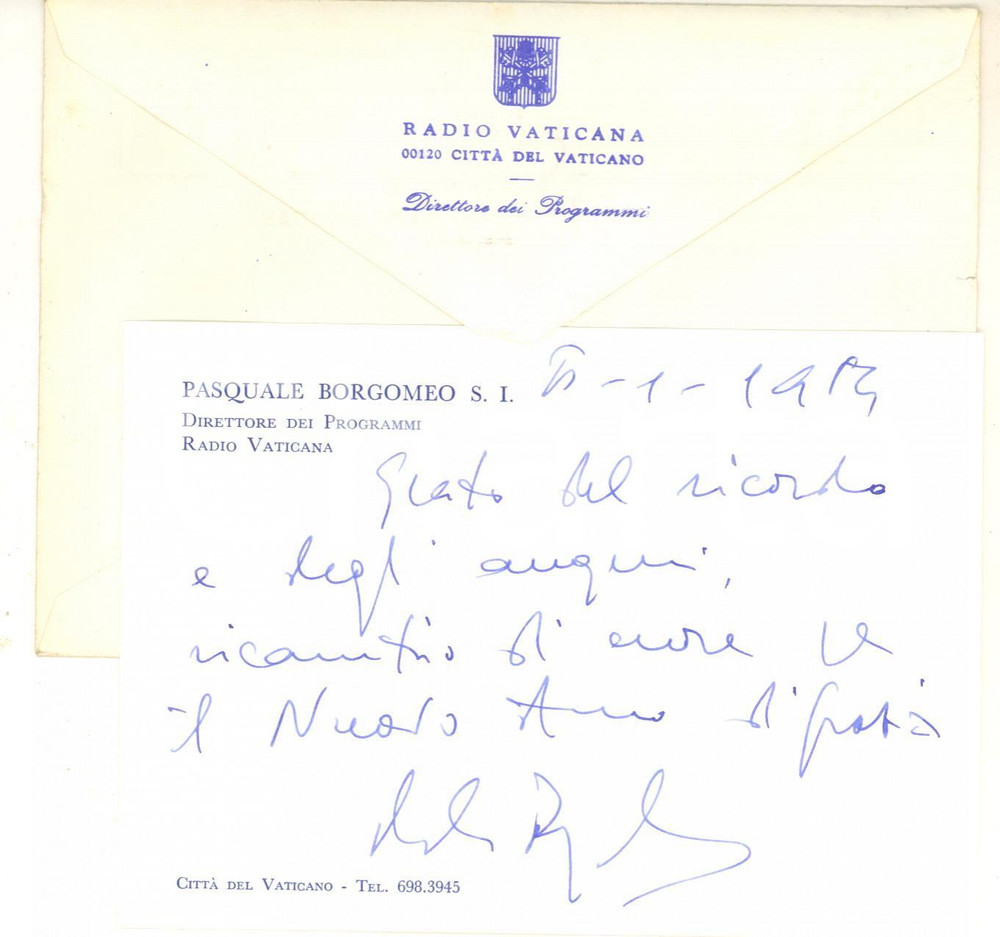 RADIO VATICANA
00120 CITTÀ DEL VATICANO
Direttore dei Programmi
PASQUALE BORGOMEO S. I.
DIRETTORE DEI PROGRAMMI
RADIO VATICANA
Grato del ricordo
e degli auguri,
ricambio di cuore
il Nuovo Anno di grazia
CITTÀ DEL VATICANO - TEL. 698.3945